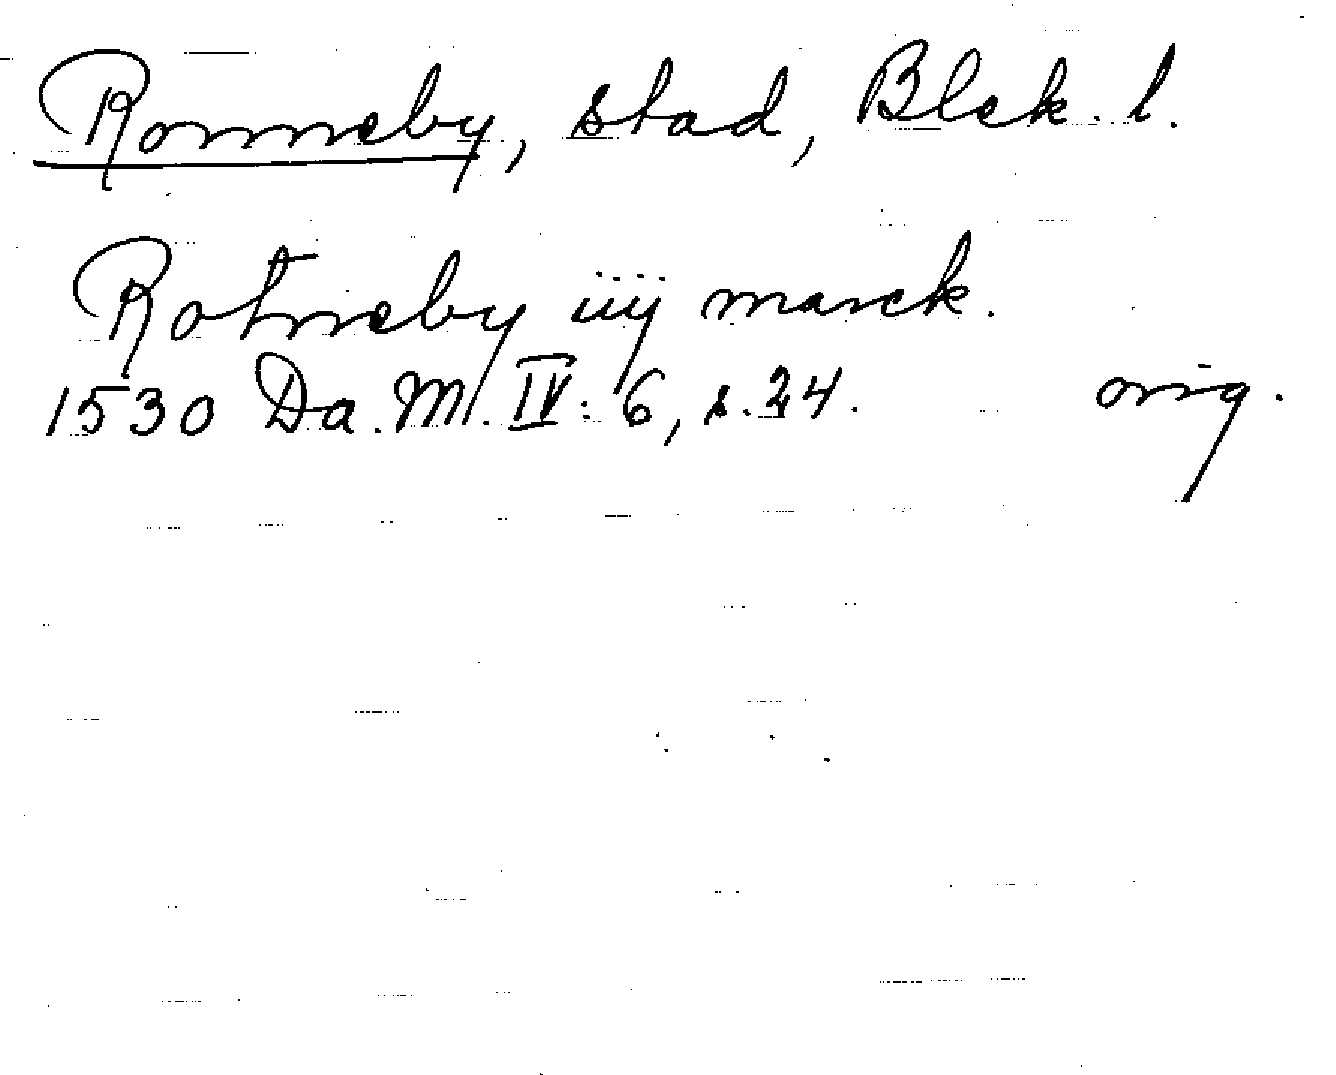 Ronneby, stad, Blek. l.
Rotneby iiij marck.
1530 Da. M. IV: 6, s. 24. orig.